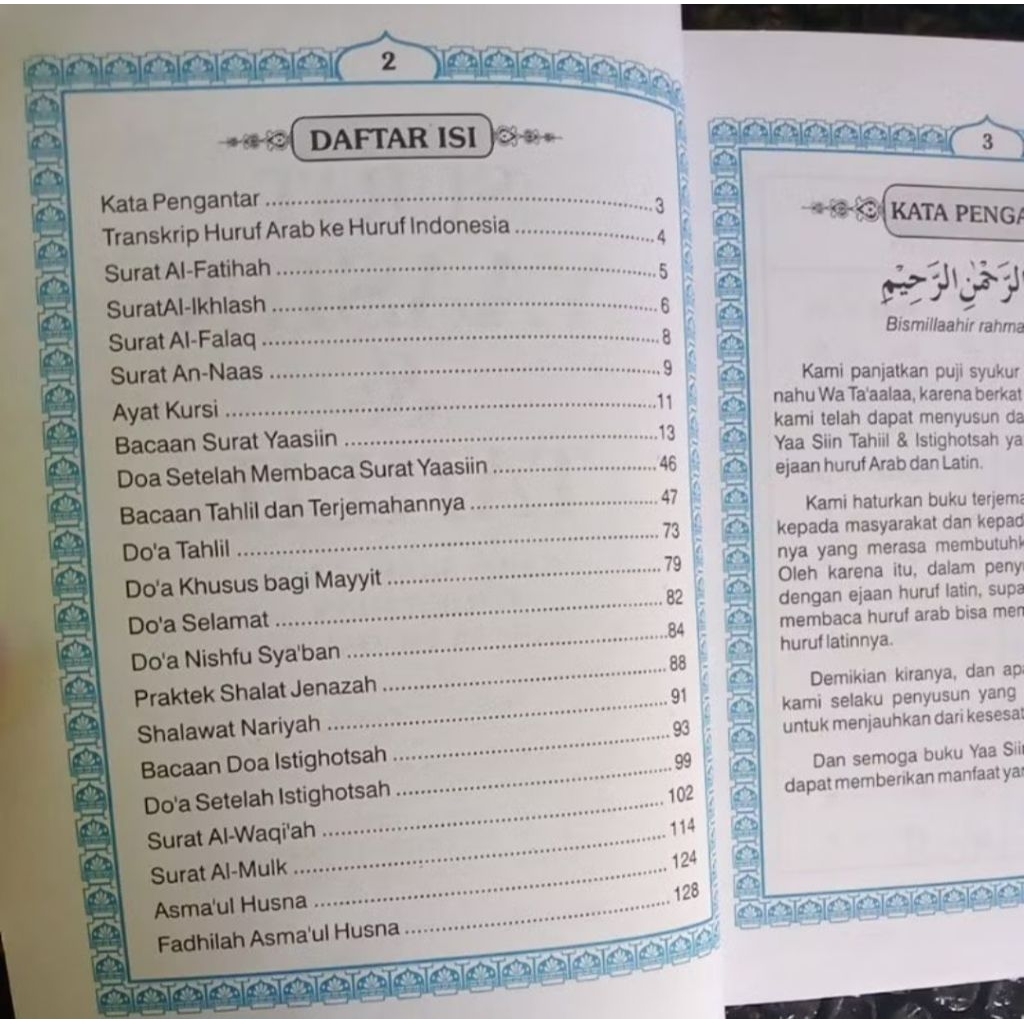 2
DAFTAR ISI
Kata Pengantar ........ 3
Transkrip Huruf Arab ke Huruf Indonesia ........ 4
Surat Al-Fatihah ........ 5
SuratAl-Ikhlash ........ 6
Surat Al-Falaq ........ 8
Surat An-Naas ........ 9
Ayat Kursi ........ 11
Bacaan Surat Yaasiin ........ 13
Doa Setelah Membaca Surat Yaasiin ........ 46
Bacaan Tahlil dan Terjemahannya ........ 47
Do'a Tahlil ........ 73
Do'a Khusus bagi Mayyit ........ 79
Do'a Selamat ........ 82
Do'a Nishfu Sya'ban ........ 84
Praktek Shalat Jenazah ........ 88
Shalawat Nariyah ........ 91
Bacaan Doa Istighotsah ........ 93
Do'a Setelah Istighotsah ........ 99
Surat Al-Waqi'ah ........ 102
Surat Al-Mulk ........ 114
Asma'ul Husna ........ 124
Fadhilah Asma'ul Husna ........ 128
3
KATA PENGA
الرَّحْمٰنِ الرَّحِيْمِ
Bismillaahir rahma
Kami panjatkan puji syukur
nahu Wa Ta'aalaa, karena berkat
kami telah dapat menyusun da
Yaa Siin Tahiil & Istighotsah ya
ejaan huruf Arab dan Latin.
Kami haturkan buku terjema
kepada masyarakat dan kepad
nya yang merasa membutuhk
Oleh karena itu, dalam peny
dengan ejaan huruf latin, supa
membaca huruf arab bisa mem
huruf latinnya.
Demikian kiranya, dan apa
kami selaku penyusun yang
untuk menjauhkan dari kesesat
Dan semoga buku Yaa Siin
dapat memberikan manfaat yan